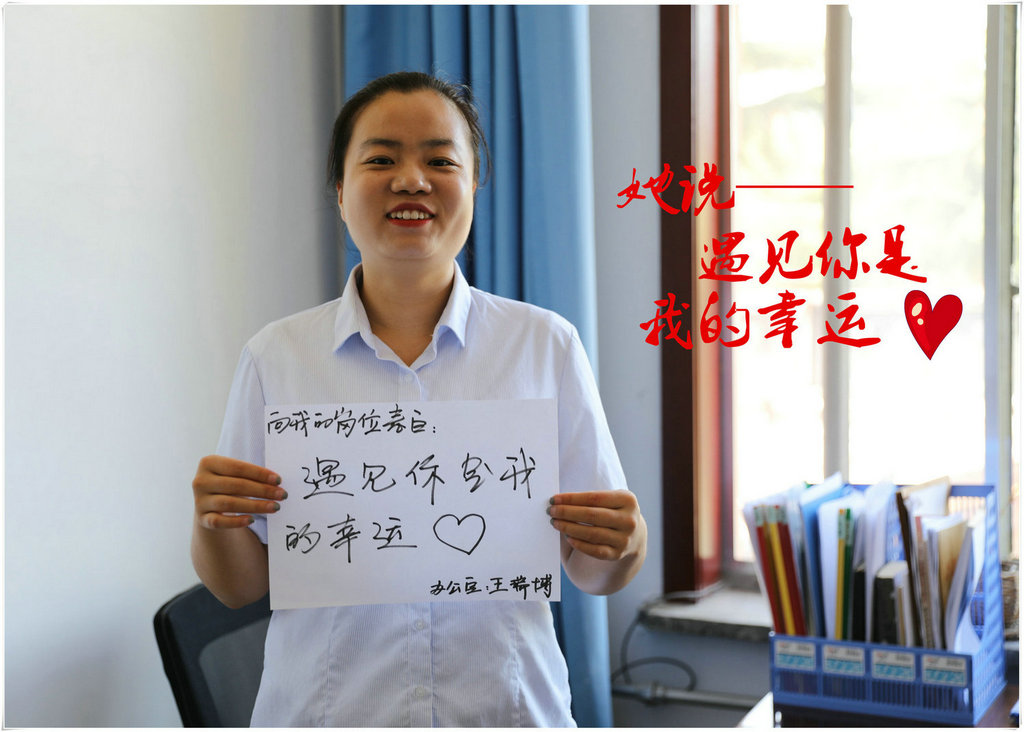 她说——
遇见你是
我的幸运
向我的岗位表白：
遇见你是我
的幸运♡
办公室：王瑞博